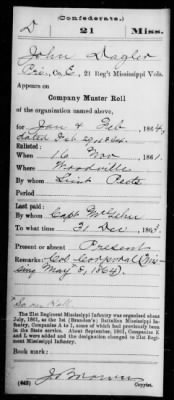 (Confederate.)
D 21 Miss.
John Dagler
Pvt., Co. E, 21 Reg't Mississippi Vols.
Appears on
Company Muster Roll
of the organization named above,
for Jan & Feb, 1864,
dated Feb 29, 1864.
Enlisted:
When 16 Nov, 1861.
Where Woodville
By whom Lieut
Period
Last paid:
By whom Capt McGehee
To what time 31 Dec, 1863.
Present or absent Present
Remarks: Col Corporal (Missing May 8, 1864).
*So on Roll.
The 21st Regiment Mississippi Infantry was organized about
July, 1861, as the 1st (Brandon's) Battalion Mississippi In-
fantry, Companies A to I, some of which had previously been
in the State service. About September, 1861, Companies K and
L were added and the designation changed to 21st Regi-
ment Mississippi Infantry.
Book mark:
(642)
Copyist.